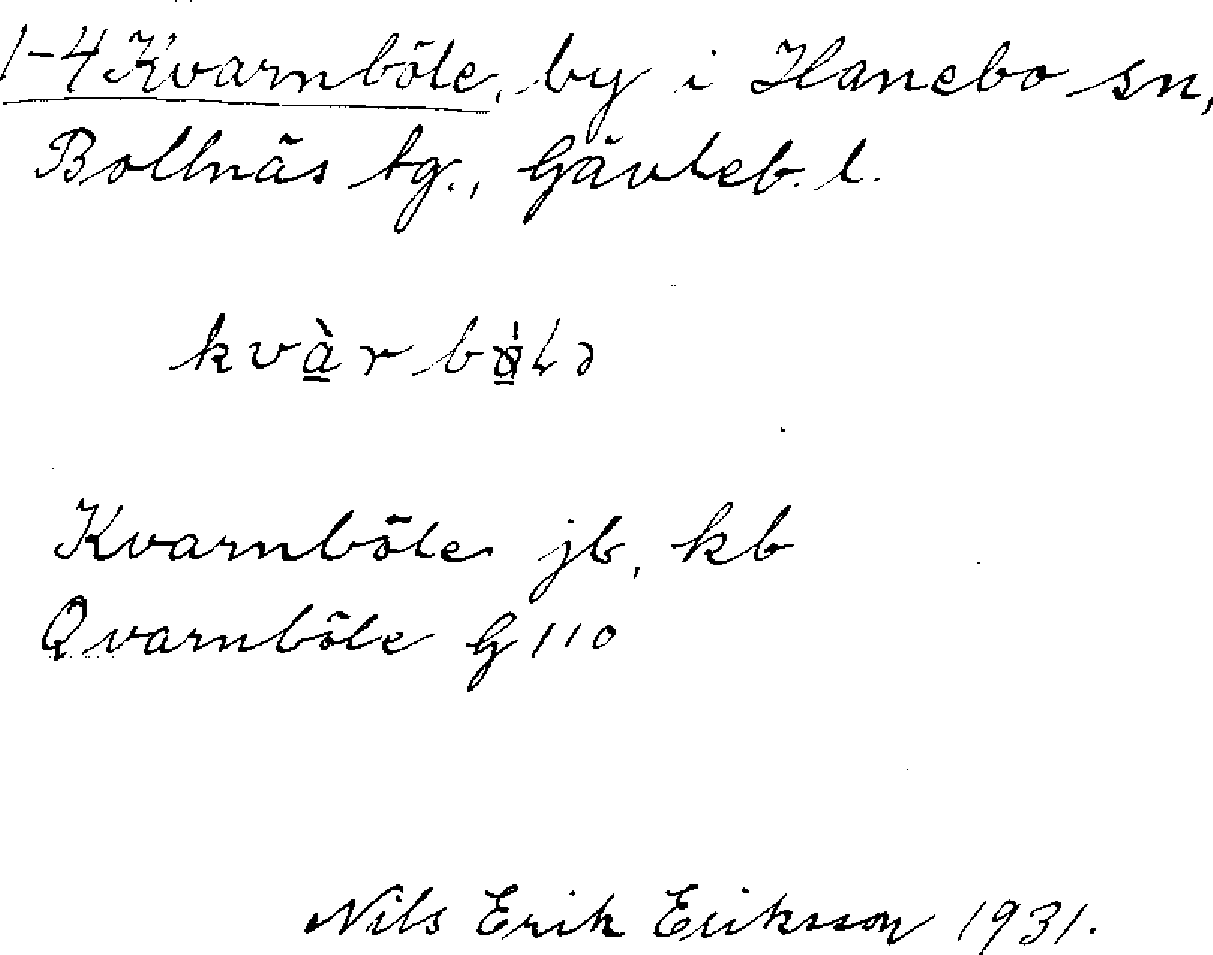 1-4 Kvarnböle, by i Hanebo sn,
Bollnäs tg., Gävleb. l.
Kvarnböle jb, kb
Qvarnböle G 110
Nils Erik Eriksson 1931.